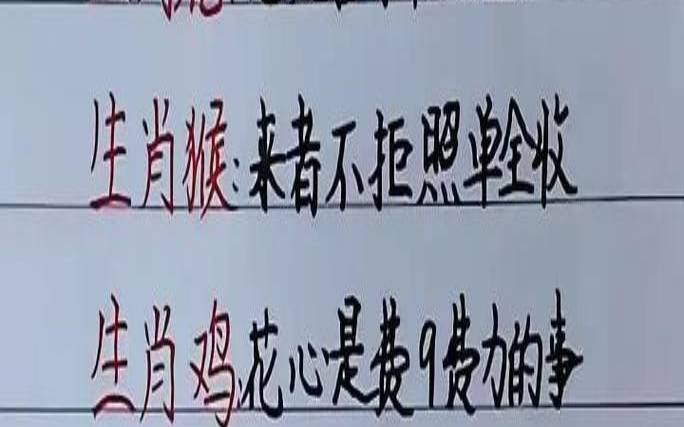 生肖猴:来者不拒照单全收
生肖鸡:花心是费9费力的事